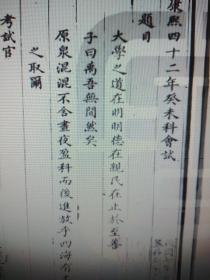 康熙四十二年癸未科會試
題目
大學之道在明明德在親民在止於至善
子曰禹吾無間然矣
原泉混混不舍晝夜盈科而後進放乎四海有
之取爾
考試官